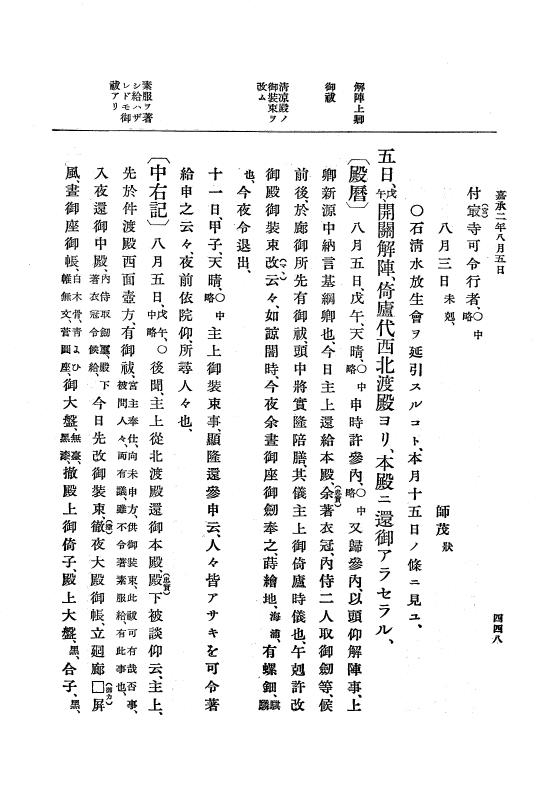 嘉承二年八月五日
四四八
付寂寺可令行者、○中略
八月三日 未剋、
師茂狀
○石清水放生會ヲ延引スルコト、本月十五日ノ條ニ見ユ、
五日、戊午、開關解陣、倚廬代西北渡殿ヨリ、本殿ニ還御アラセラル、
解陣上卿
御祓
清涼殿ノ御裝束ヲ改ム
素服ヲ著シ給ハザレドモ御祓アリ
〔殿曆〕八月五日戊午、天晴、○中略申時許參內、○中略又歸參內、以頭仰解陣事、上
卿新源中納言基綱卿也、今日主上還給本殿、余(忠實)著衣冠、內侍二人取御劔等、候
前後、於廊御所先有御祓、頭中將實隆陪膳、其儀主上御倚廬時儀也、午剋許改
御殿御裝束改(マヽ)云々、如諒闇時、今夜余晝御座御劔奉之、蒔繪地、海浦、有螺鈿、麒麟
也、今夜令退出、
十一日、甲子、天晴、○中略主上御裝束事、顯隆還參申云、人々皆アサキを可令著
給申之云々、夜前依院仰、所尋人々也、
〔中右記〕八月五日、戊午、○中略後聞、主上從北渡殿還御本殿、殿下(忠實)被談仰云、主上、
先於件渡殿西面壺方、有御祓、宮主奉仕、向未申方、供御裝束、此祓可有哉否事、被問人々、而有議、雖不令著素服給、有此事也、
入夜還御中殿、內侍取劔璽、殿下著衣冠令候給、今日先改御裝束、徹(撤)夜大殿御帳、立廻廊□(御カ)屛
風、晝御座御帳、白木骨、青よひ帷、無文菅圓座、御大盤、無臺、黑漆、撤殿上御倚子、殿上大盤、黑、合子、黑、